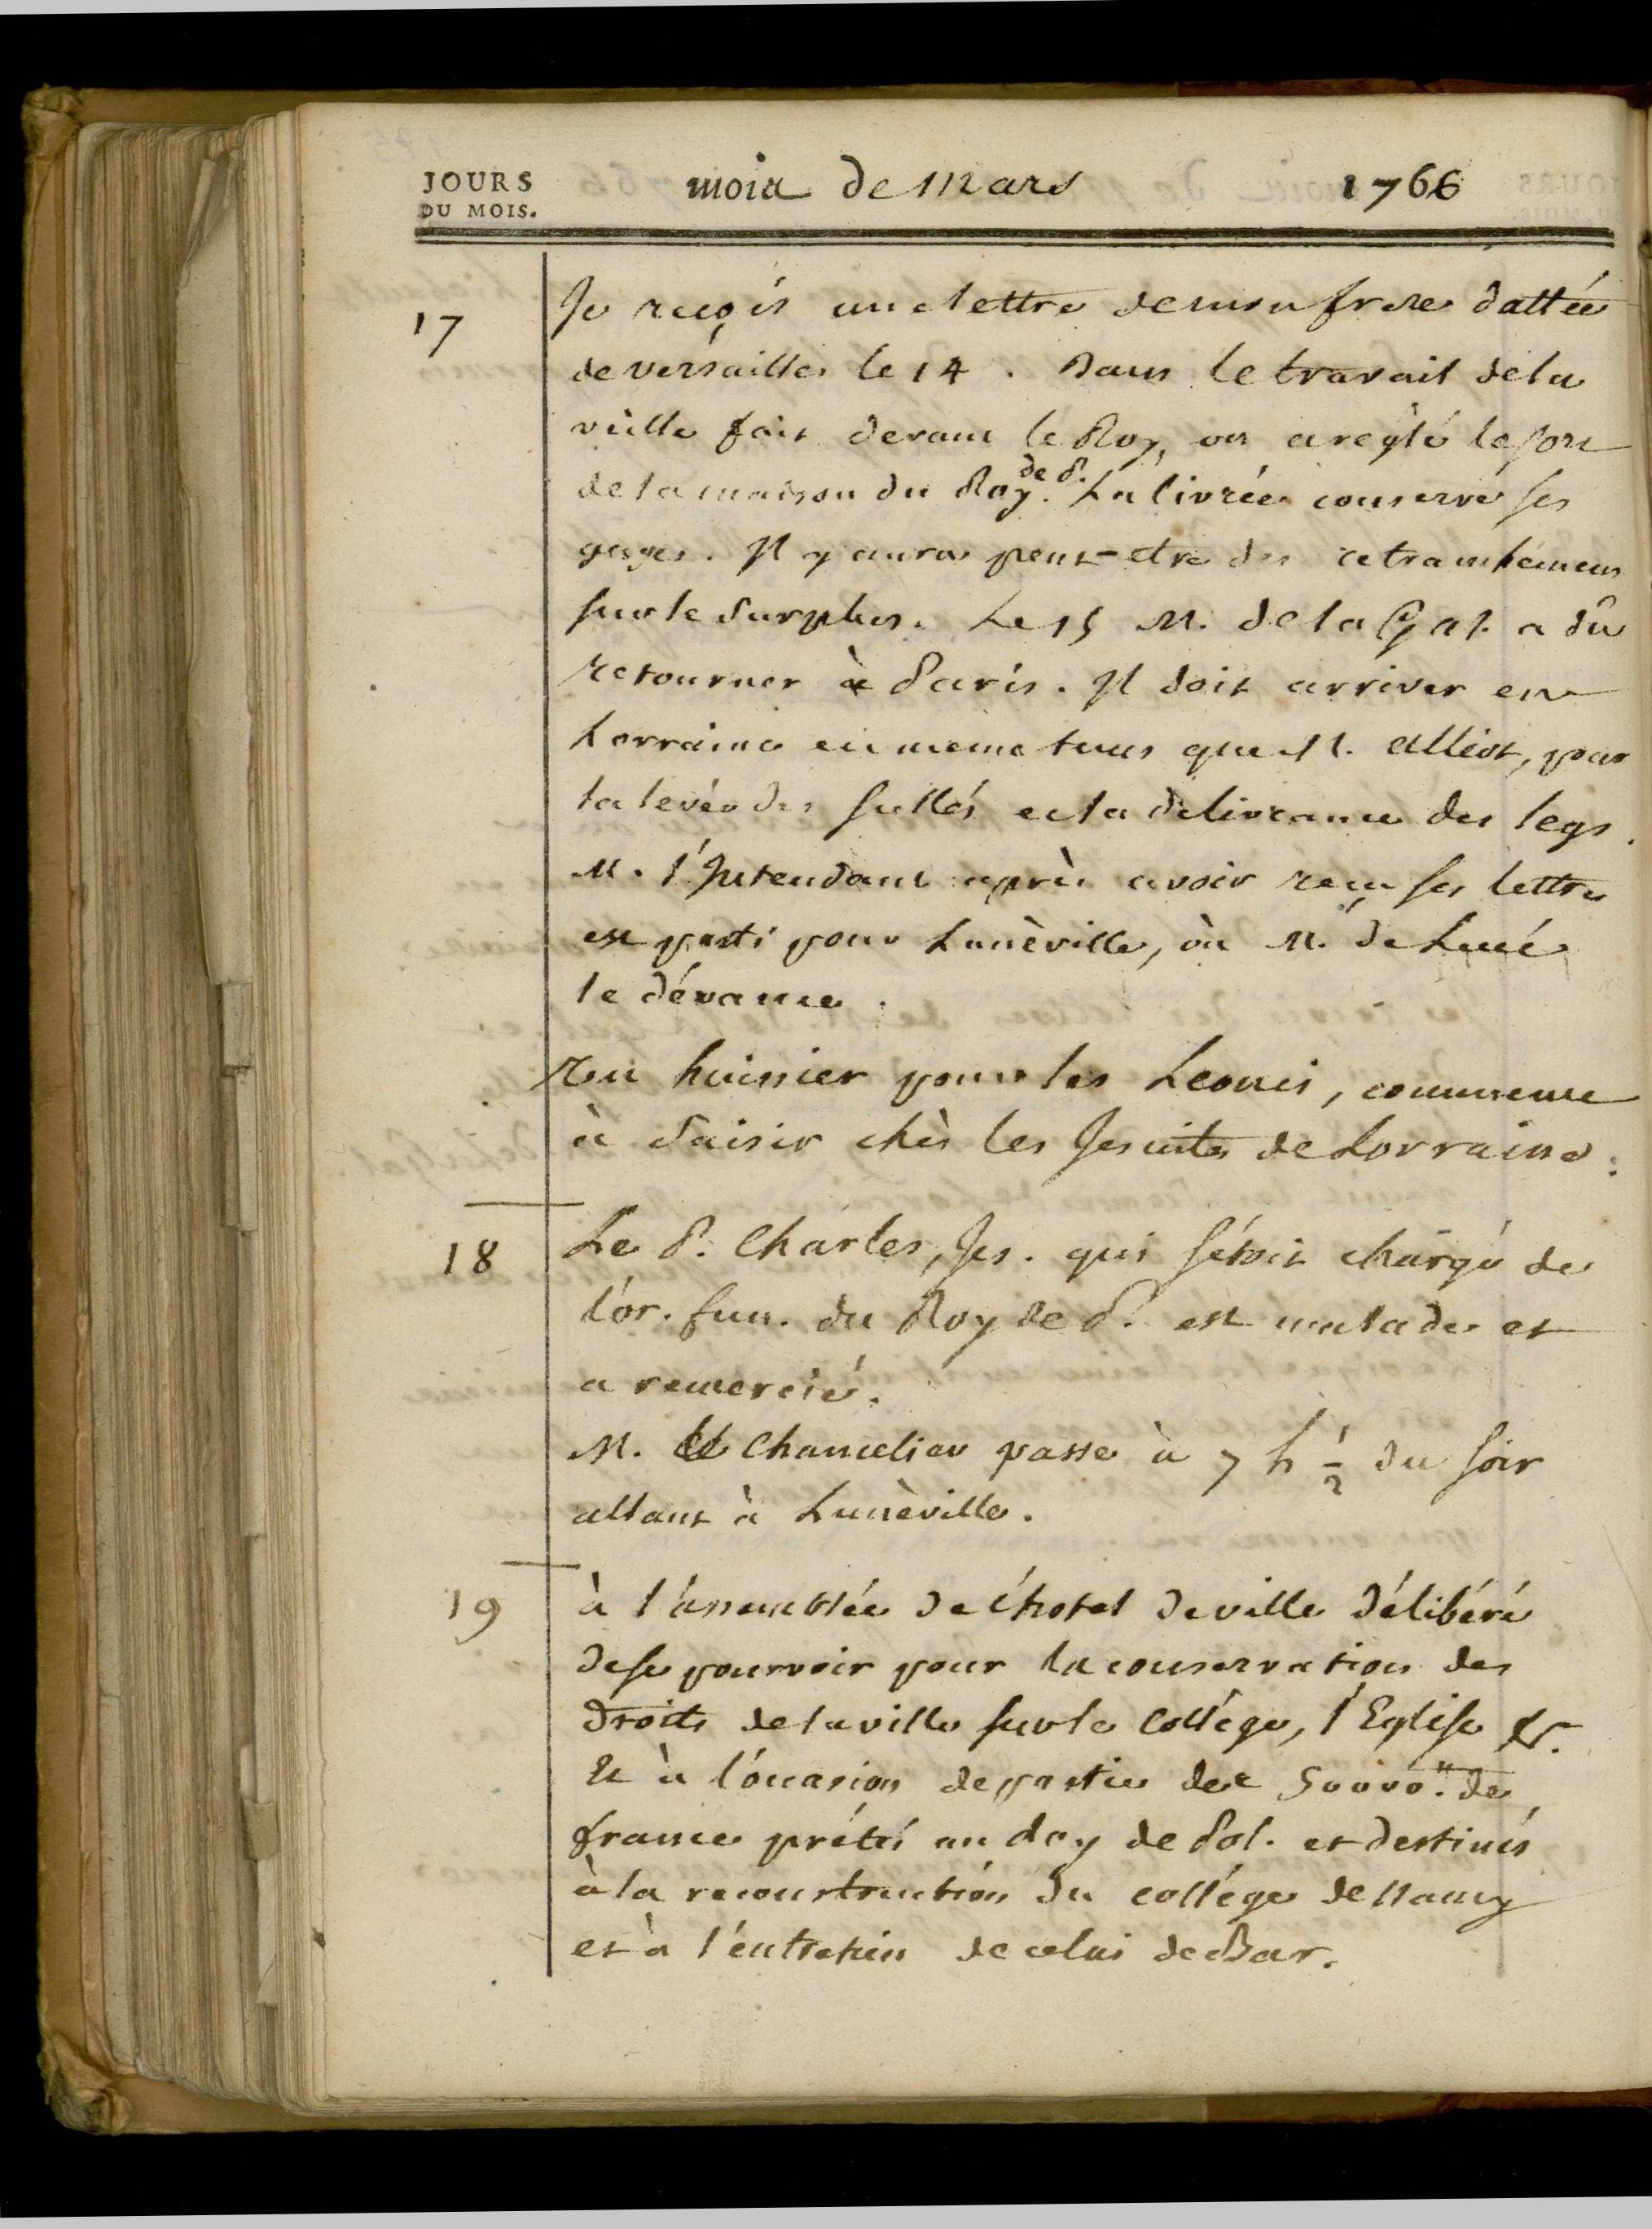 JOURS
DU MOIS.
mois de Mars 1766
17
Je reçois une lettre de mon frere dattée
de versailles le 14. Dans le travail de la
veille fait devant le Roy, on a reglé le sort
de la maison du Roy de P. La livrée conserve ses
gages. Il y aura peut-etre des retranchemens
sur le surplus. Le 15 M. de la Gal. a dû
retourner à Paris. Il doit arriver en
Lorraine en meme tems que M. Alliot, pour
la levée des scellés et la délivrance des legs.
M. l'Intendant après avoir reçu ses lettres
est parti pour Lunèville, où M. de Lucé
le dévance.
Un huissier pour les Leonci, commence
à saisir chès les Jesuites de Lorraine.
18
Le P. Charles, Jes. qui s'étoit chargé de
l'or. fun. du Roy de P. est malade et
a remercié.
M. le Chancelier passe à 7 h ½ du soir
allant à Lunèville.
19
à l'assemblée de l'hotel de ville délibéré
de se pourvoir pour la conservation des
droits de la ville sur le Collége, l'Eglise &c.
Et à l'occasion de partie des de
france prétés au Roy de Pol. et destinés
à la reconstruction du collége de Nancy
et à l'entretien de celui de Bar.